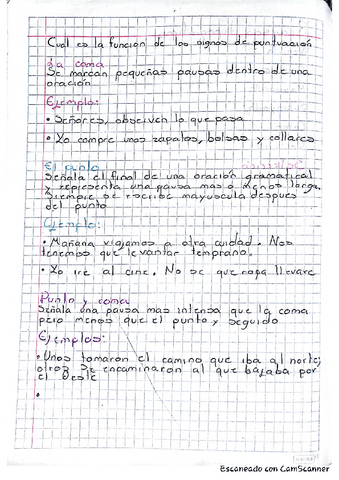 Cual es la funcion de los signos de puntuación
La coma
Se marcan pequeñas pausas dentro de una
oración
Ejemplo:
• Señores, observen lo que pasa
• Yo compre unos zapatos, bolsas y collares
El punto
Señala el final de una oración gramatical
y representa una pausa mas o menos larga.
Siempre se escribe mayuscula despues
del punto
Ejemplo:
• Mañana viajamos a otra ciudad. Nos
tenemos que levantar temprano.
• Yo ire al cine. No se que ropa llevare
Punto y coma
Señala una pausa mas intensa que la coma
pero menos que el punto y seguido
Ejemplos:
• Unos tomaron el camino que iba al norte;
otros se encaminaron al que bajaba por
el Oeste
•
Escaneado con CamScanner